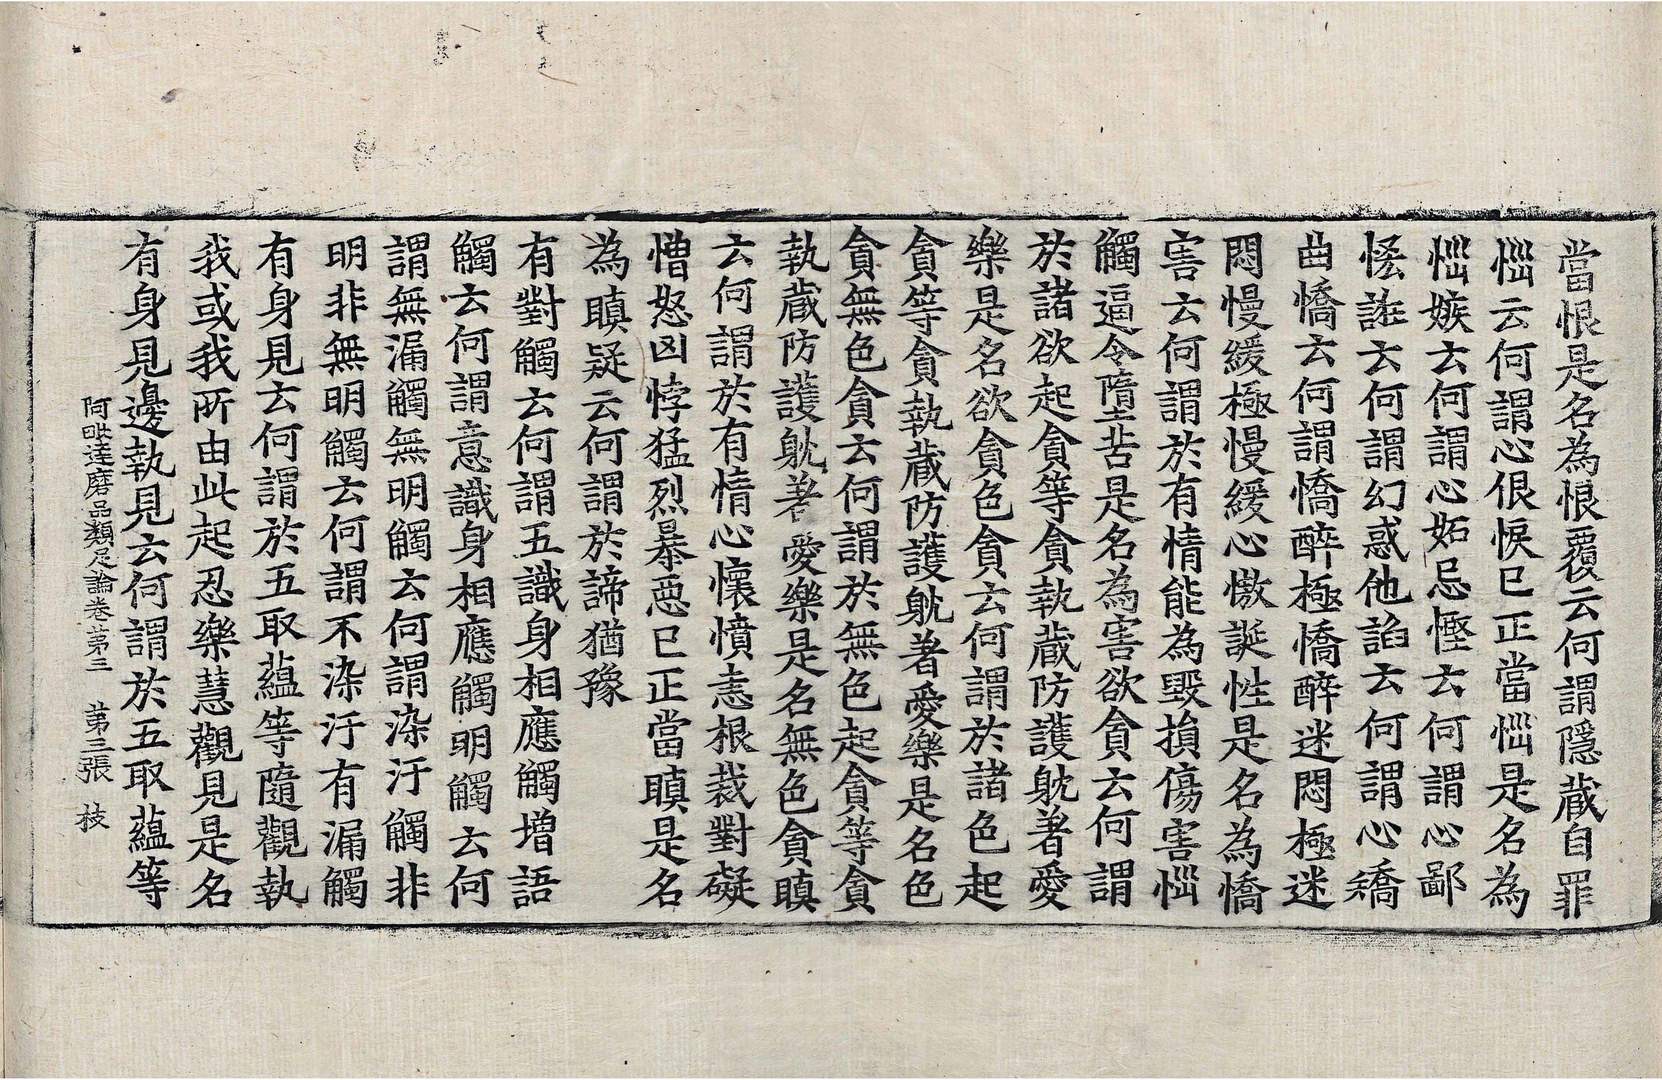 當恨是名為恨覆云何謂隱藏自罪
㤼云何謂心佷悷已正當㤼是名為
㤼嫉云何謂心妬忌慳云何謂心鄙
悋誑云何謂幻惑他諂云何謂心矯
曲憍云何謂憍醉極憍醉迷悶極迷
悶慢緩極慢緩心憿誕性是名為憍
害云何謂於有情能為毀損傷害㤼
觸逼令墮苦是名為害欲貪云何謂
於諸欲起貪等貪執藏防護躭著愛
樂是名欲貪色貪云何謂於諸色起
貪等貪執藏防護躭著愛樂是名色
貪無色貪云何謂於無色起貪等貪
執藏防護躭著愛樂是名無色貪瞋
云何謂於有情心懷憤恚根栽對礙
憎怒凶悖猛烈暴惡已正當瞋是名
為瞋疑云何謂於諦猶豫
有對觸云何謂五識身相應觸增語
觸云何謂意識身相應觸明觸云何
謂無漏觸無明觸云何謂染汙觸非
明非無明觸云何謂不染汙有漏觸
有身見云何謂於五取蘊等隨觀執
我或我所由此起忍樂慧觀見是名
有身見邊執見云何謂於五取蘊等
阿毗達磨品類足論卷第三　第三張　枝